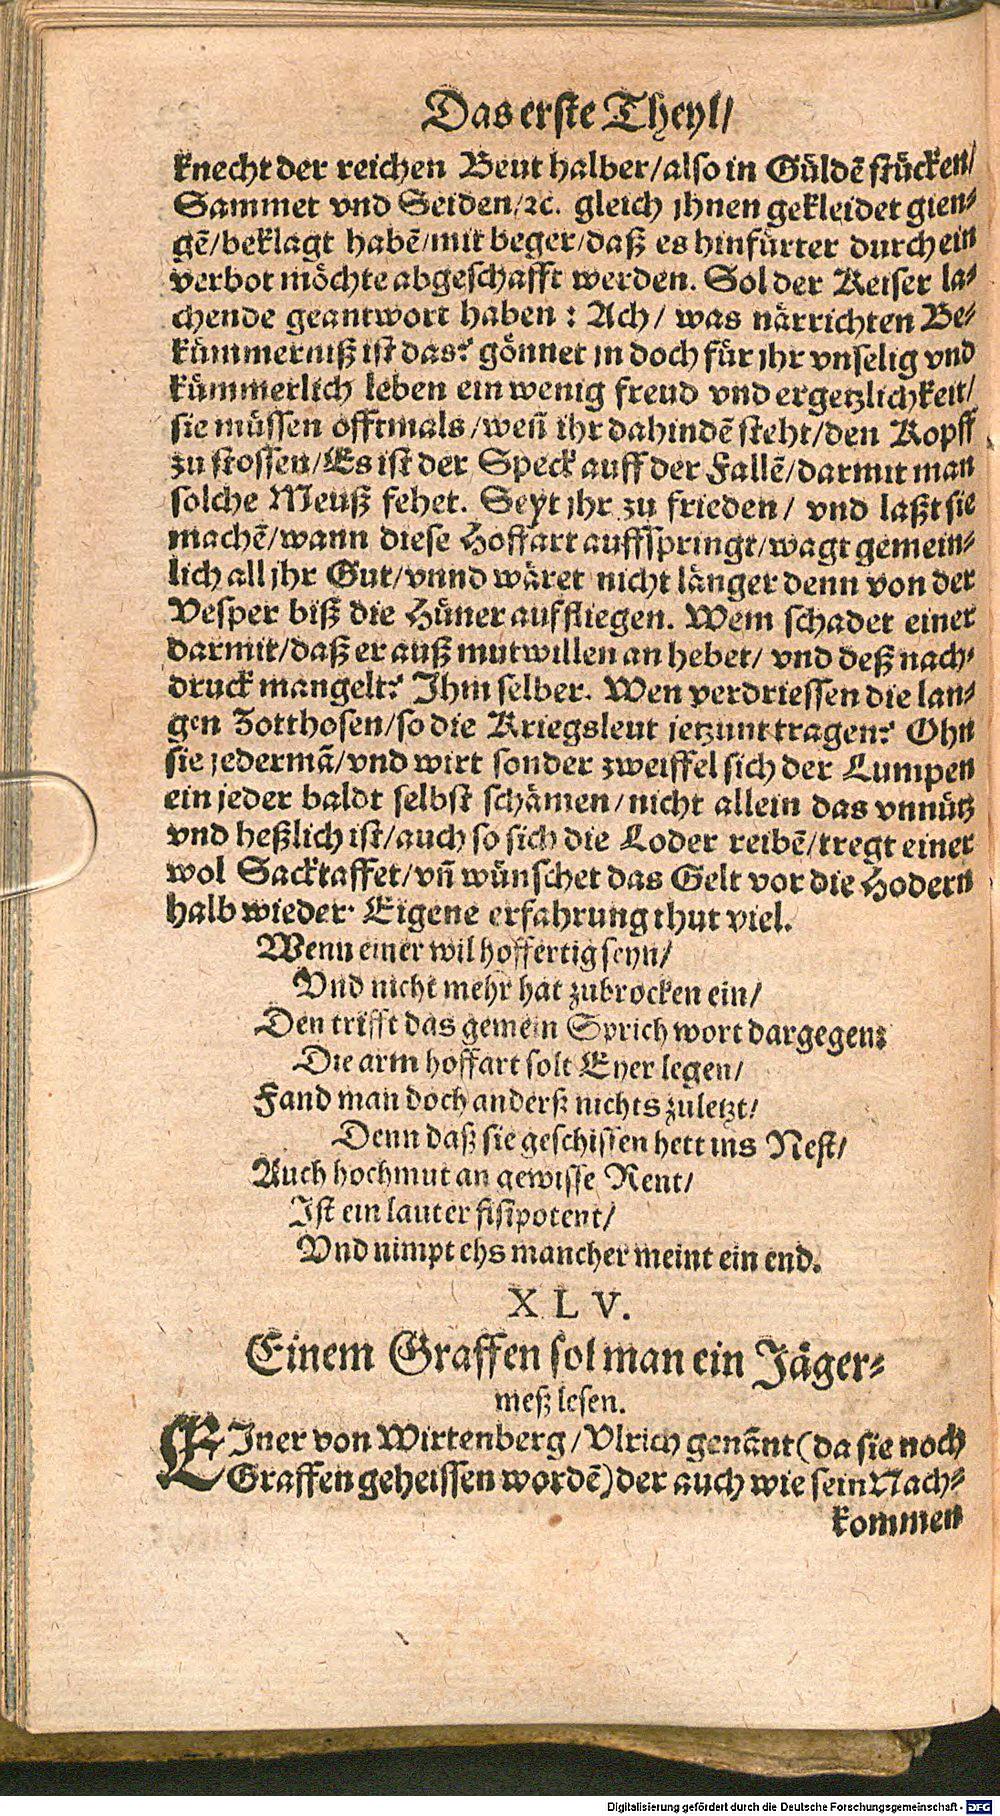 Das erste Theyl/
knecht der reichen Beut halber/also in Güldẽ stücken/
Sammet vnd Seiden/ꝛc. gleich jhnen gekleidet gien-
gẽ/beklagt habẽ/mit beger/daß es hinfürter durch ein
verbot möchte abgeschafft werden. Sol der Keiser la-
chende geantwort haben : Ach/ was närrichten Be-
kümmerniß ist das? gönnet jn doch für jhr vnselig vnd
kümmerlich leben ein wenig freud vnd ergetzlichkeit/
sie müssen offtmals/weñ ihr dahindẽ steht/den Kopff
zu stossen/Es ist der Speck auff der Fallẽ/darmit man
solche Meuß fehet. Seyt jhr zu frieden/ vnd laßt sie
machẽ/wann diese Hoffart auffspringt/wagt gemein-
lich all jhr Gut/vnnd wäret nicht länger denn von der
Vesper biß die Hüner auffliegen. Wem schadet einer
darmit/daß er auß mutwillen an hebet/ vnd deß nach-
druck mangelt? Ihm selber. Wen verdriessen die lan-
gen Zotthosen/so die Kriegsleut jetzunt tragen? Ohn
sie jedermã/vnd wirt sonder zweiffel sich der Lumpen
ein jeder baldt selbst schämen/nicht allein das vnnütz
vnd heßlich ist/auch so sich die Loder reibẽ/tregt einer
wol Sacktaffet/vñ wünschet das Gelt vor die Hodern
halb wieder. Eigene erfahrung thut viel.
Wenn einer wil hoffertig seyn/
Vnd nicht mehr hat zubrocken ein/
Den trifft das gemein Sprichwort dargegen:
Die arm hoffart solt Eyer legen/
Fand man doch anderß nichts zuletzt/
Denn daß sie geschissen hett ins Nest/
Auch hochmut an gewisse Rent/
Ist ein lauter fisipotent/
Vnd nimpt ehs mancher meint ein end.
X L V.
Einem Graffen sol man ein Jäger-
meß lesen.
EIner von Wirtenberg/Vlrich genãnt(da sie noch
Graffen geheissen wordẽ)der auch wie sein Nach-
kommen
Digitalisierung gefördert durch die Deutsche Forschungsgemeinschaft - DFG